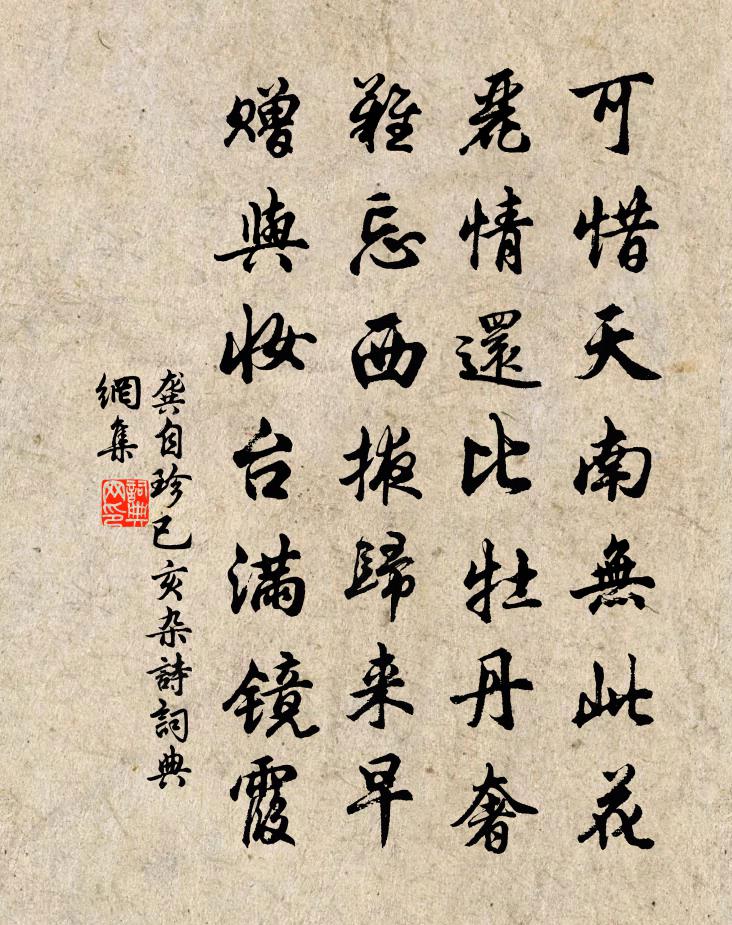 可惜天南無此花
麗情還比牡丹奢
難忘西掖歸来早
贈與妝台满鏡霞
龔自珍己亥杂詩詞典
網集
詞典
网印